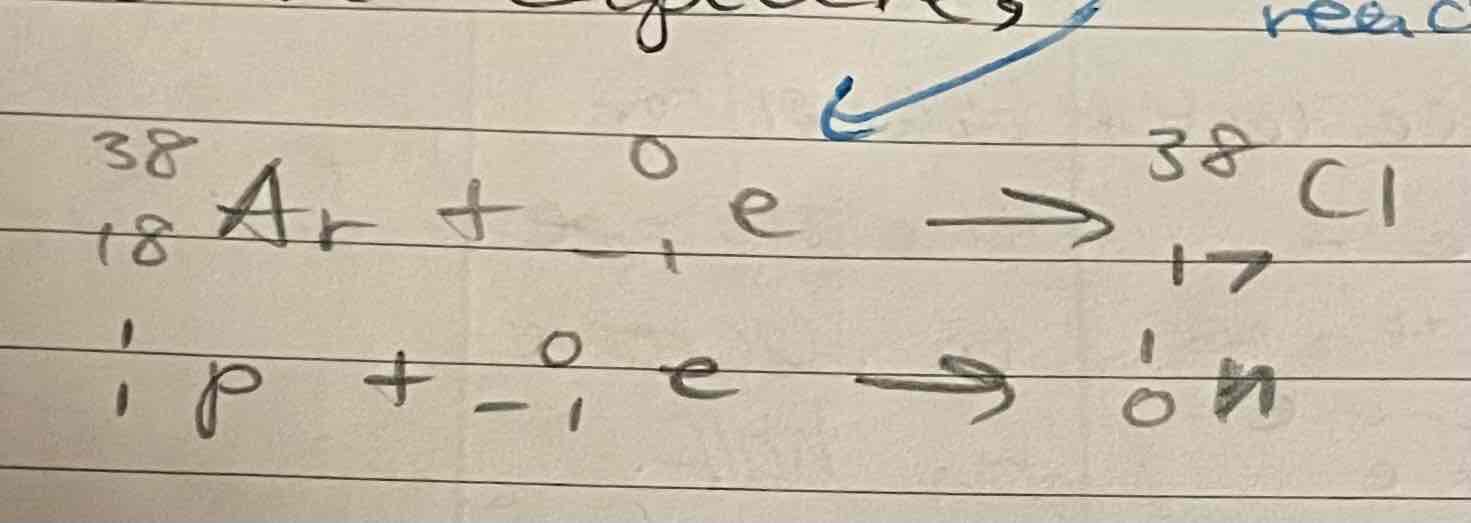 ³⁸₁₈Ar + ⁰₋₁e → ³⁸₁₇Cl
¹₁p + ⁰₋₁e → ¹₀n